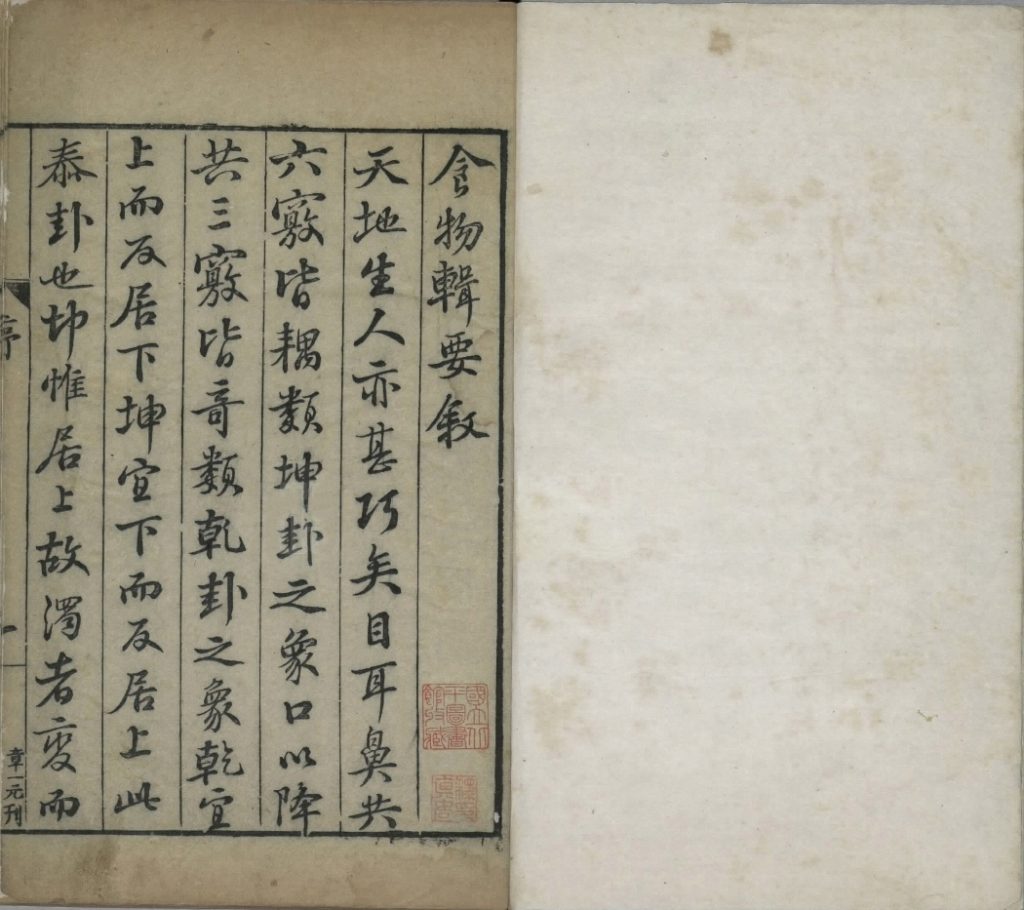 食物輯要敘
天地生人亦甚巧矣目耳鼻共
六竅皆耦類坤卦之象口以降
共三竅皆奇類乾卦之象乾宜
上而反居下坤宜下而反居上此
泰卦也坤惟居上故濁者变而
序
一
章一元刊
國立北
平圖書
館收藏